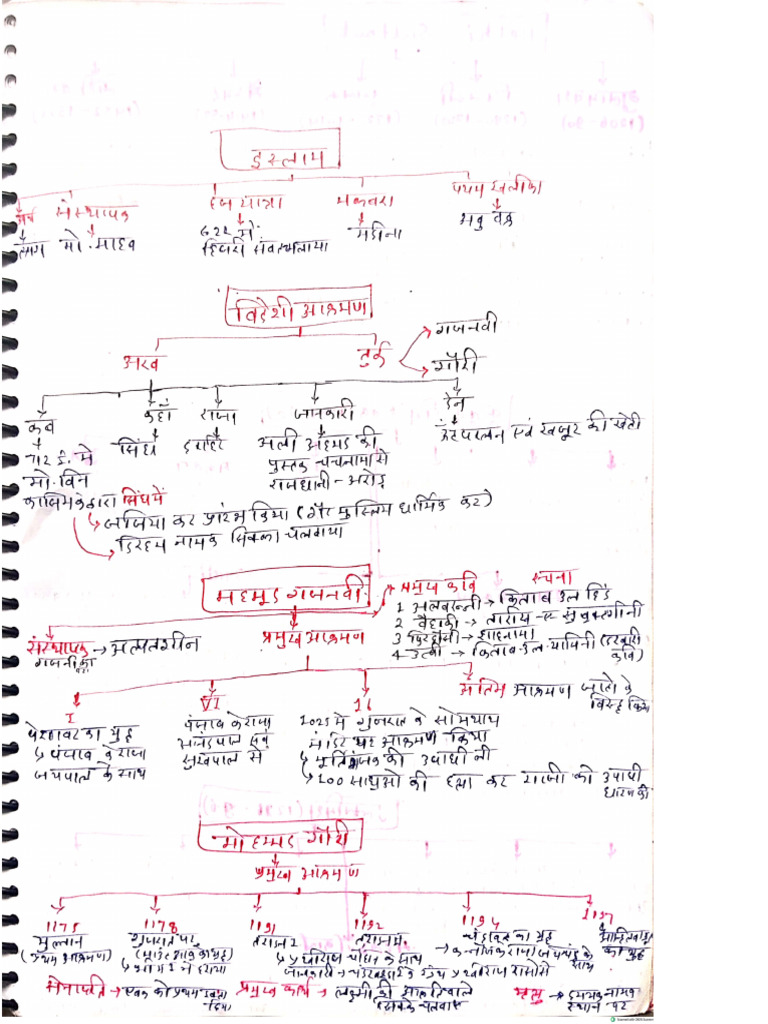 इस्लाम
अर्थ संस्थापक हज यात्रा मकबरा प्रथम खलीफा
मो. साहब 622 में मदीना अबु वक्र
हिजरी संवत चलाया
विदेशी आक्रमण
अरब तुर्क गजनवी
गौरी
कब कहाँ राजा जानकारी देन
712 ई. में सिंध दाहिर अली अहमद की ऊंटपालन एवं खजूर की खेती
मो. बिन पुस्तक चचनामा से
कासिम के द्वारा सिंध में राजधानी - अरोर
जजिया कर प्रारंभ किया (गैर मुस्लिम धार्मिक कर)
दिरहम नामक सिक्का चलवाया
महमूद गजनवी
प्रमुख कवि रचना
1 अलबरूनी → किताब उल हिंद
2 बैहाकी → तारीख-ए-सुबुक्तगीनी
3 फिरदौसी → शाहनामा
4 उत्बी → किताब-उल-यामिनी (दरबारी कवि)
संस्थापक → अल्पतगीन प्रमुख आक्रमण
गजनी का
I VI 16 अंतिम आक्रमण जाटों के विरुद्ध किया
पेशावर का युद्ध पंजाब के राजा 1025 में गुजरात के सोमनाथ
पंजाब के राजा एवं मंदिर पर आक्रमण किया
जयपाल के साथ सुखपाल से मूर्तिभंजक की उपाधी ली
100 साधुओ की हत्या कर गाजी की उपाधी धारण की
मोहम्मद गौरी
प्रमुख आक्रमण
1175 1178 1191 1192 1194 1197
मुल्तान गुजरात पर तराइन 1 चंदावर का युद्ध
(प्रथम आक्रमण) कन्नौज के राजा जयचंद के साथ का युद्ध
पृथ्वीराज चौहान के साथ
जानकारी → चंदबरदाई के ग्रंथ पृथ्वीराज रासो से
सेनापति → प्रमुख कार्य → लक्ष्मी की आकृति वाले सिक्के चलवाए मृत्यु → दमयक नामक स्थान पर